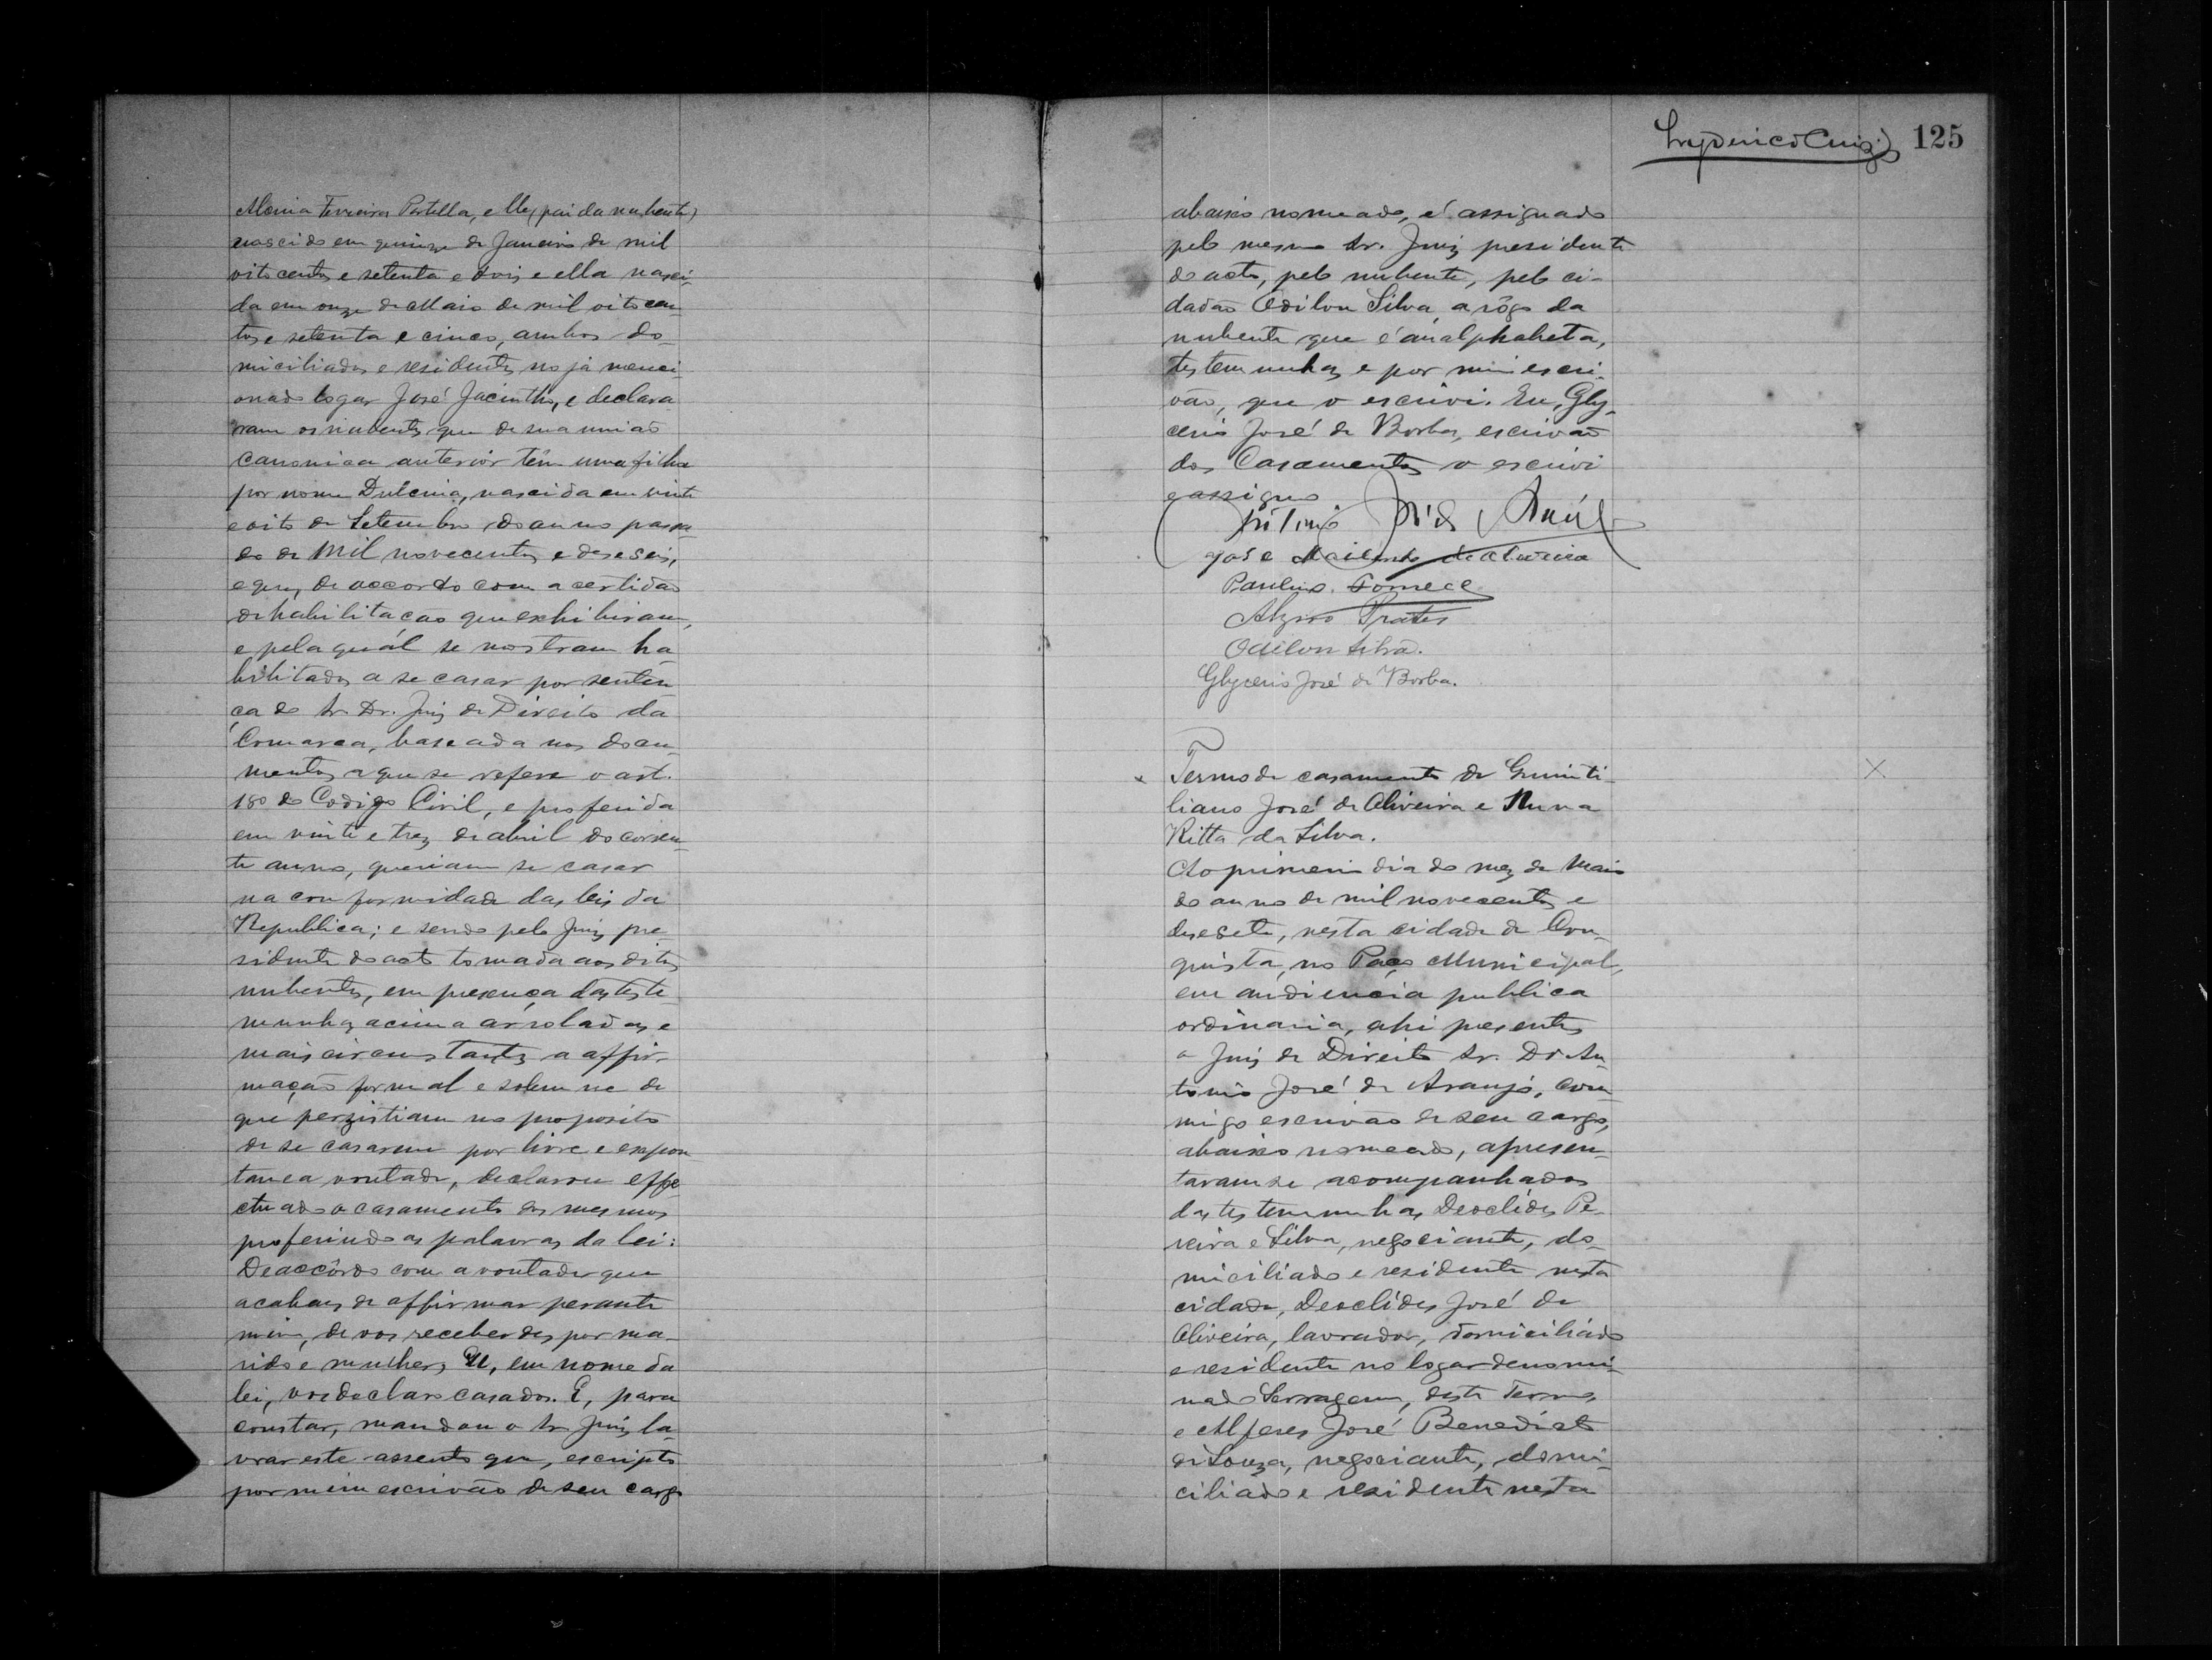 Maria Ferreira Portella, elle, (pai da nubente)
nascido em quinze de Janeiro de mil
oitocentos e setenta e dois e ella nasci-
da em onze de Maio de mil oitocen-
tos e setenta e cinco, ambos do-
miciliados e residentes no já menci-
onado logar José Jacintho, e declara-
ram os nubentes que de sua união
canonica anterior têm uma filha
por nome Dulcinia, nascida em vinte
e oito de Setembro do anno passa-
do de mil novecentos e deseseis,
e que, de accordo com a certidão
de habilitacao que exhibiram,
e pela quál se mostram ha-
bilitados a se casar por senten-
ça do Sr. Dr. Juiz de Direito da
Comarca, baseada nos docu-
mentos a que se refere o art.
180 do Codigo Civil, e proferida
em vinte e trez de abril do corren-
te anno, queriam se casar
na conformidade das leis da
Republica; e sendo pelo Juiz pre-
sidente do acto tomada aos ditos
nubentes, em presença das teste-
munhas acima arroladas e
mais circunstantes a affir-
mação formal e solemne de
que persistiam no proposito
de se casarem por livre e expon-
tanea vontade, declarou effe-
ctuado o casamento dos mesmos
proferindo as palavras da lei:
De accôrdo com a vontade que
acabaes de affirmar perante
mim, de vos receberdes por ma-
rido e mulher, Eu, em nome da
lei, vos declaro casados. E, para
constar, mandou o Sr Juiz la-
vrar este assento que, escripto
por mim escrivão de seu cargo
125
abaixo nomeado, é assignado
pelo mesmo Sr. Juiz presidente
do acto, pelo nubente, pelo ci-
dadão Odilon Silva, a rôgo da
nubente que é analphabeta,
testemunhas e por mim escri-
vão, que o escrivi. Eu, Gly-
cerio José de Borba, escrivão
dos Casamentos o escrivi
e assigno
José
Paulino Fonseca
Prates
Odilon Silva.
Glycerio José de Borba.
Termo de casamento de Quinti-
liano José de Oliveira e
Ritta da Silva.
Ao primeiro dia do mez de Maio
do anno de mil novecentos e
desesete, nesta cidade de Con-
quista, no Paço Municipal,
em audiencia publica
ordinaria, ahi presentes
o Juiz de Direito Sr. Dr An-
tonio José de Araujo, com-
migo escrivão de seu cargo,
abaixo nomeado, apresen-
taram se acompanhados
das testemunhas Deoclides Pe-
reira e Silva, negociante, do-
miciliado e residente nesta
cidade, Deoclides José de
Oliveira, lavrador, domiciliado
e residente no logar denomi-
nado Serragem, deste Termo,
e Alferes José Benedicto
de Souza, negociante, domi-
ciliado e residente nesta